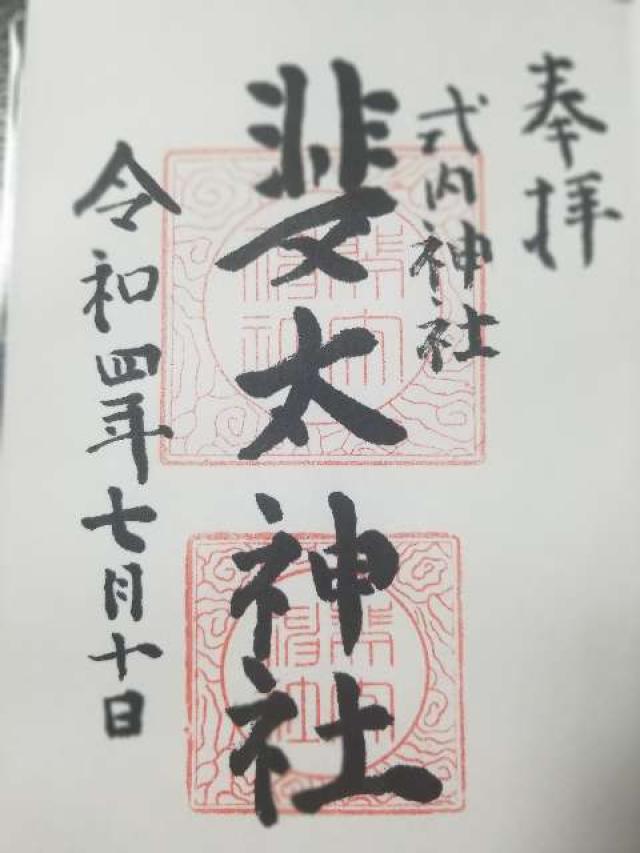 奉拝
式内神社
斐太神社
令和四年七月十日